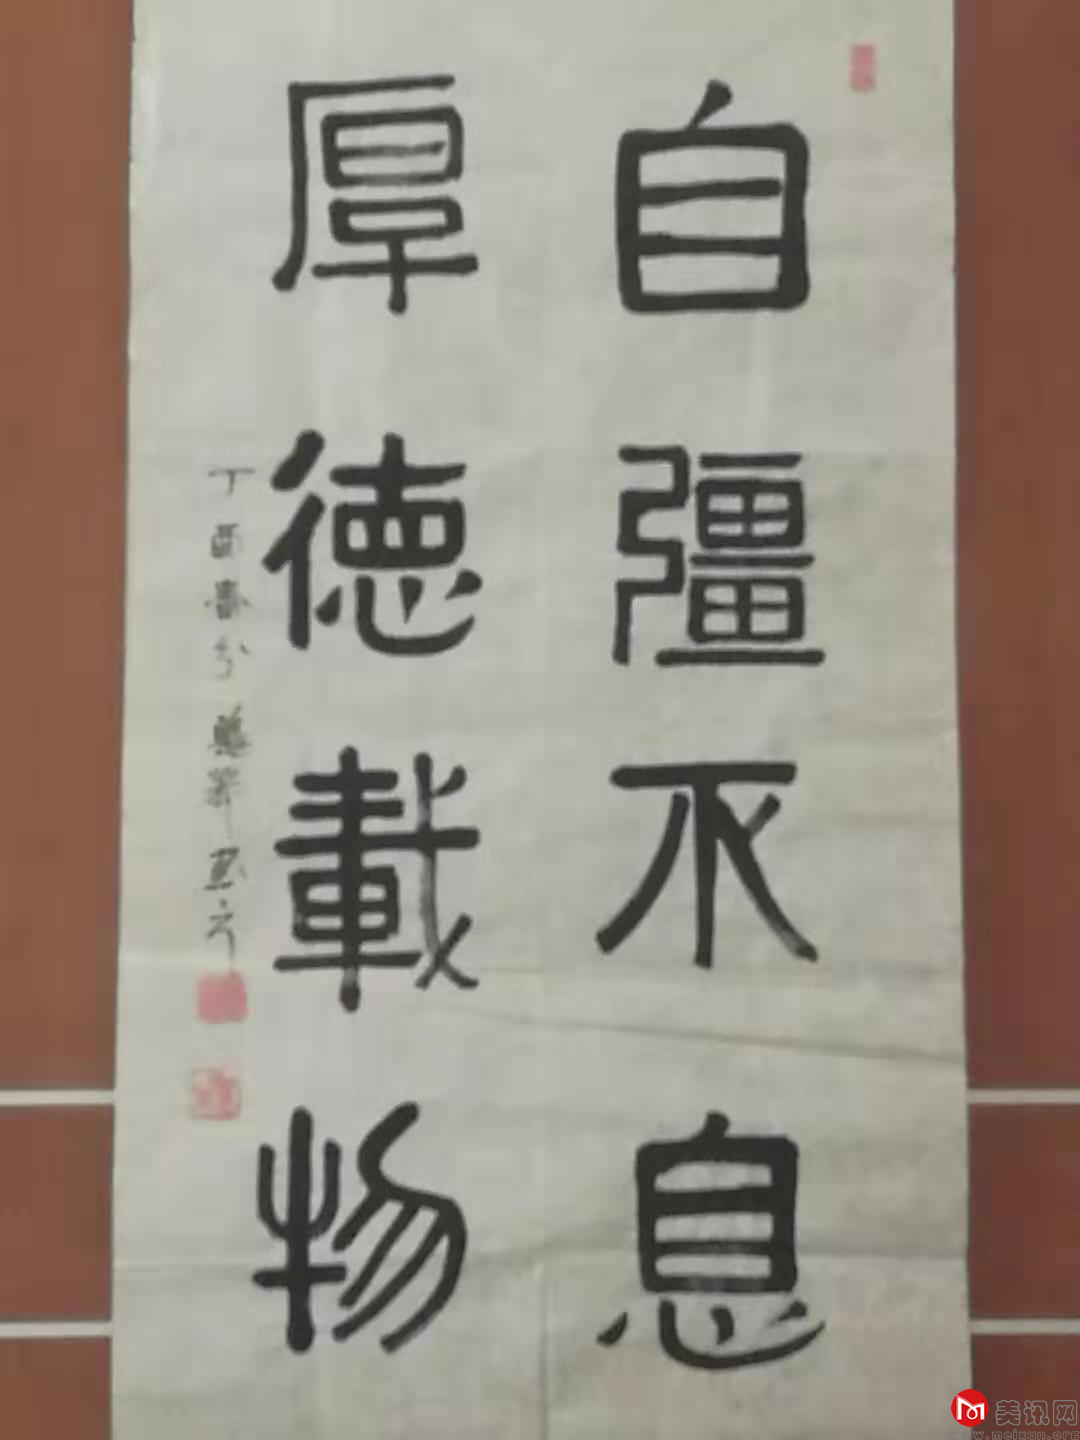 自彊不息
厚德載物
丁酉春分
美讯网
www.meixun.org